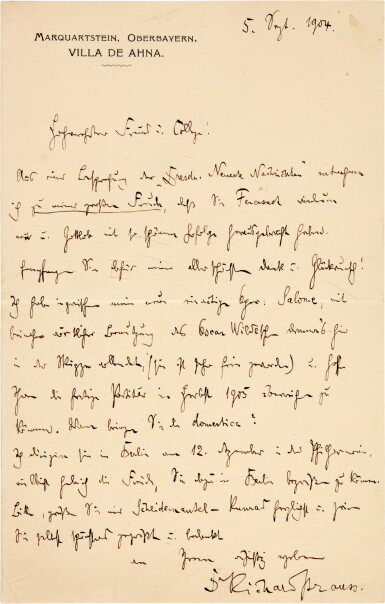 MARQUARTSTEIN, OBERBAYERN.
VILLA DE AHNA.
5. Sept. 1904.
Hochverehrter Freund u. College!
Aus einer Besprechung der „Dresdn. Neueste Nachrichten" entnehme
ich zu meiner großen Freude, daß Sie Feuersnot wiederum
neu u. Gottlob mit so schönem Erfolge herausgebracht haben.
Empfangen Sie dafür meinen allerschönsten Dank u. Glückwunsch!
Ich habe inzwischen mein neues einaktiges Oper: Salome, mit
wörtlicher Benutzung des Oscar Wilde'schen
in der Skizze vollendet, (sie ist sehr fein geworden) u. hoffe
Ihnen die fertige Partitur im Herbst 1905 überreichen zu
können. Wann bringen Sie die domestica?
Ich dirigiere sie in Berlin am 12. Dezember in der Philharmonie,
vielleicht habe ich die Freude, Sie dazu in Berlin begrüßen zu können.
Bitte, grüßen Sie mir Scheidemantel herzlichst u. seien
Sie selbst schönstens gegrüßt u. bedankt
von Ihrem aufrichtig ergebenen
Dr Richard Strauss.